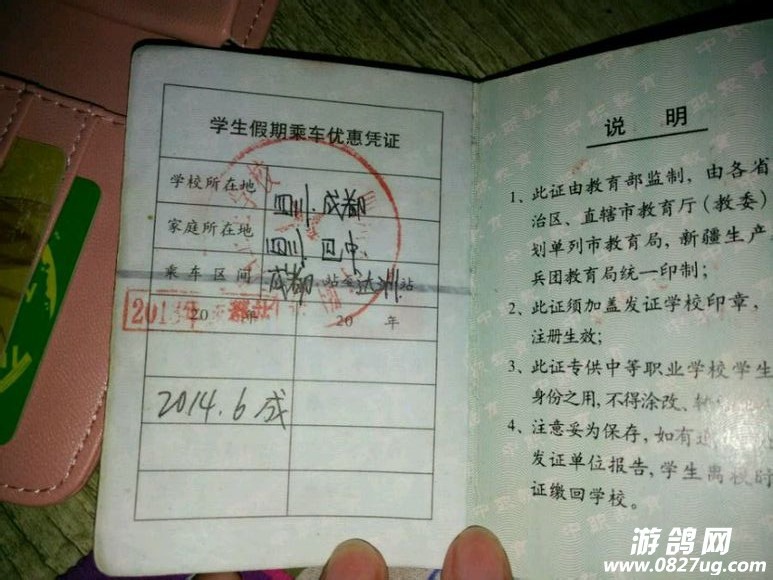 学生假期乘车优惠凭证
学校所在地 四川.成都
家庭所在地 四川.巴中.
乘车区间 成都.站至达洲站
2013年
20 年 20 年
2014.6成
说 明
1、此证由教育部监制，由各省
治区、直辖市教育厅（教委）
划单列市教育局，新疆生产
兵团教育局统一印制；
2、此证须加盖发证学校印章，
注册生效；
3、此证专供中等职业学校学生
身份之用，不得涂改、
4、注意妥为保存，如有
发证单位报告，学生离校时
证缴回学校。
中职教育
游鸽网
www.0827ug.com